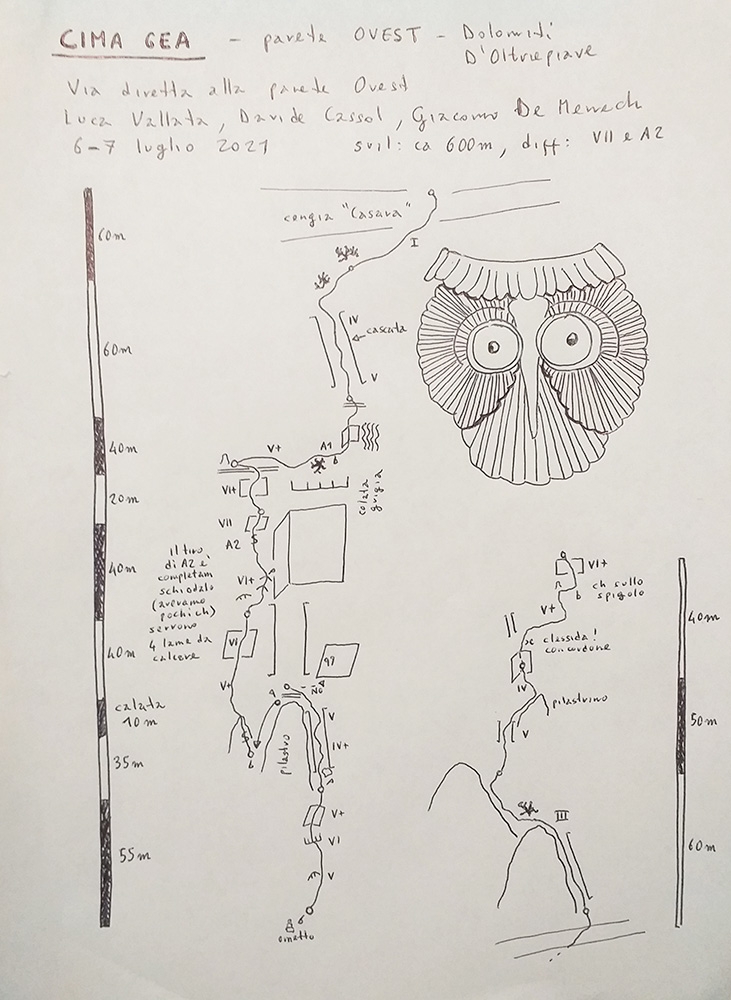 CIMA GEA - parete OVEST - Dolomiti
D'Oltrepiave
Via diretta alla parete Ovest
Luca Vallata, Davide Cassol, Giacomo De Menech
6-7 luglio 2021 svil: ca 600m, diff: VII e A2
60m
cengia "Casara"
I
60m
IV
cascata
V
40m
V+
A1
20m
VII
colata
grigia
VII
A2
40m
Il tiro
di A2 è
completam
schiodato
(avevamo
pochi ch)
servono
4 lame da
calcare
VI+
40m
VI
V+
97
NO
calata
10m
35m
pilastro
V
IV+
55m
V+
VI
V
ometto
VI+
ch sullo
spigolo
V+
40m
clessidra!
con cordone
IV
pilastrino
V
50m
III
60m